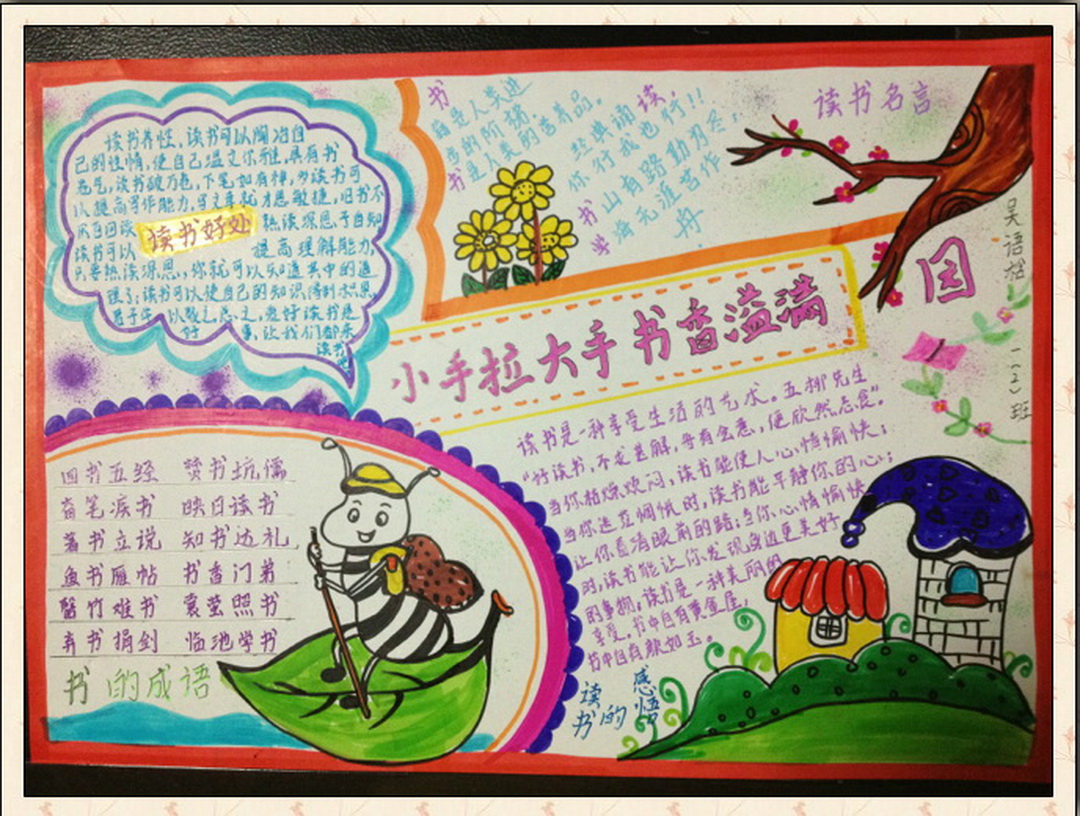 读书养性,读书可以陶冶自
己的性情,使自己温文尔雅,具有书
卷气;读书破万卷,下笔如有神,多读书可
以提高写作能力,写文章就才思敏捷;旧书不
厌百回读 熟读深思子自知
读书可以 提高理解能力,
只要熟读深思,你就可以知道其中的道
理了;读书可以使自己的知识得到积累,
君子学以聚之。总之,爱好读书是
好 事。让我们都来
读书吧
读书好处
书籍是人类进
步的阶梯
书是人类的营养品。
经典诵读,
你行我也行!!
书山有路勤为径;
学海无涯苦作
舟.
读书名言
吴语
一(2)班
小手拉大手书香溢满园
读书是一种享受生活的艺术。五柳先生
“好读书,不求甚解,每有会意,便欣然忘食”。
当你枯燥烦闷,读书能使人心情愉快;
当你迷茫惆怅时,读书能平静你的心;
让你看清眼前的路;当你心情愉快
时,读书能让你发现身边更美好
的事物。读书是一种美丽的
享受。书中自有黄金屋,
书中自有颜如玉。
读书的感悟
四书五经 焚书坑儒
映日读书
著书立说 知书达礼
鱼书雁帖 书香门第
罄竹难书 囊萤照书
弃书捐剑 临池学书
书的成语